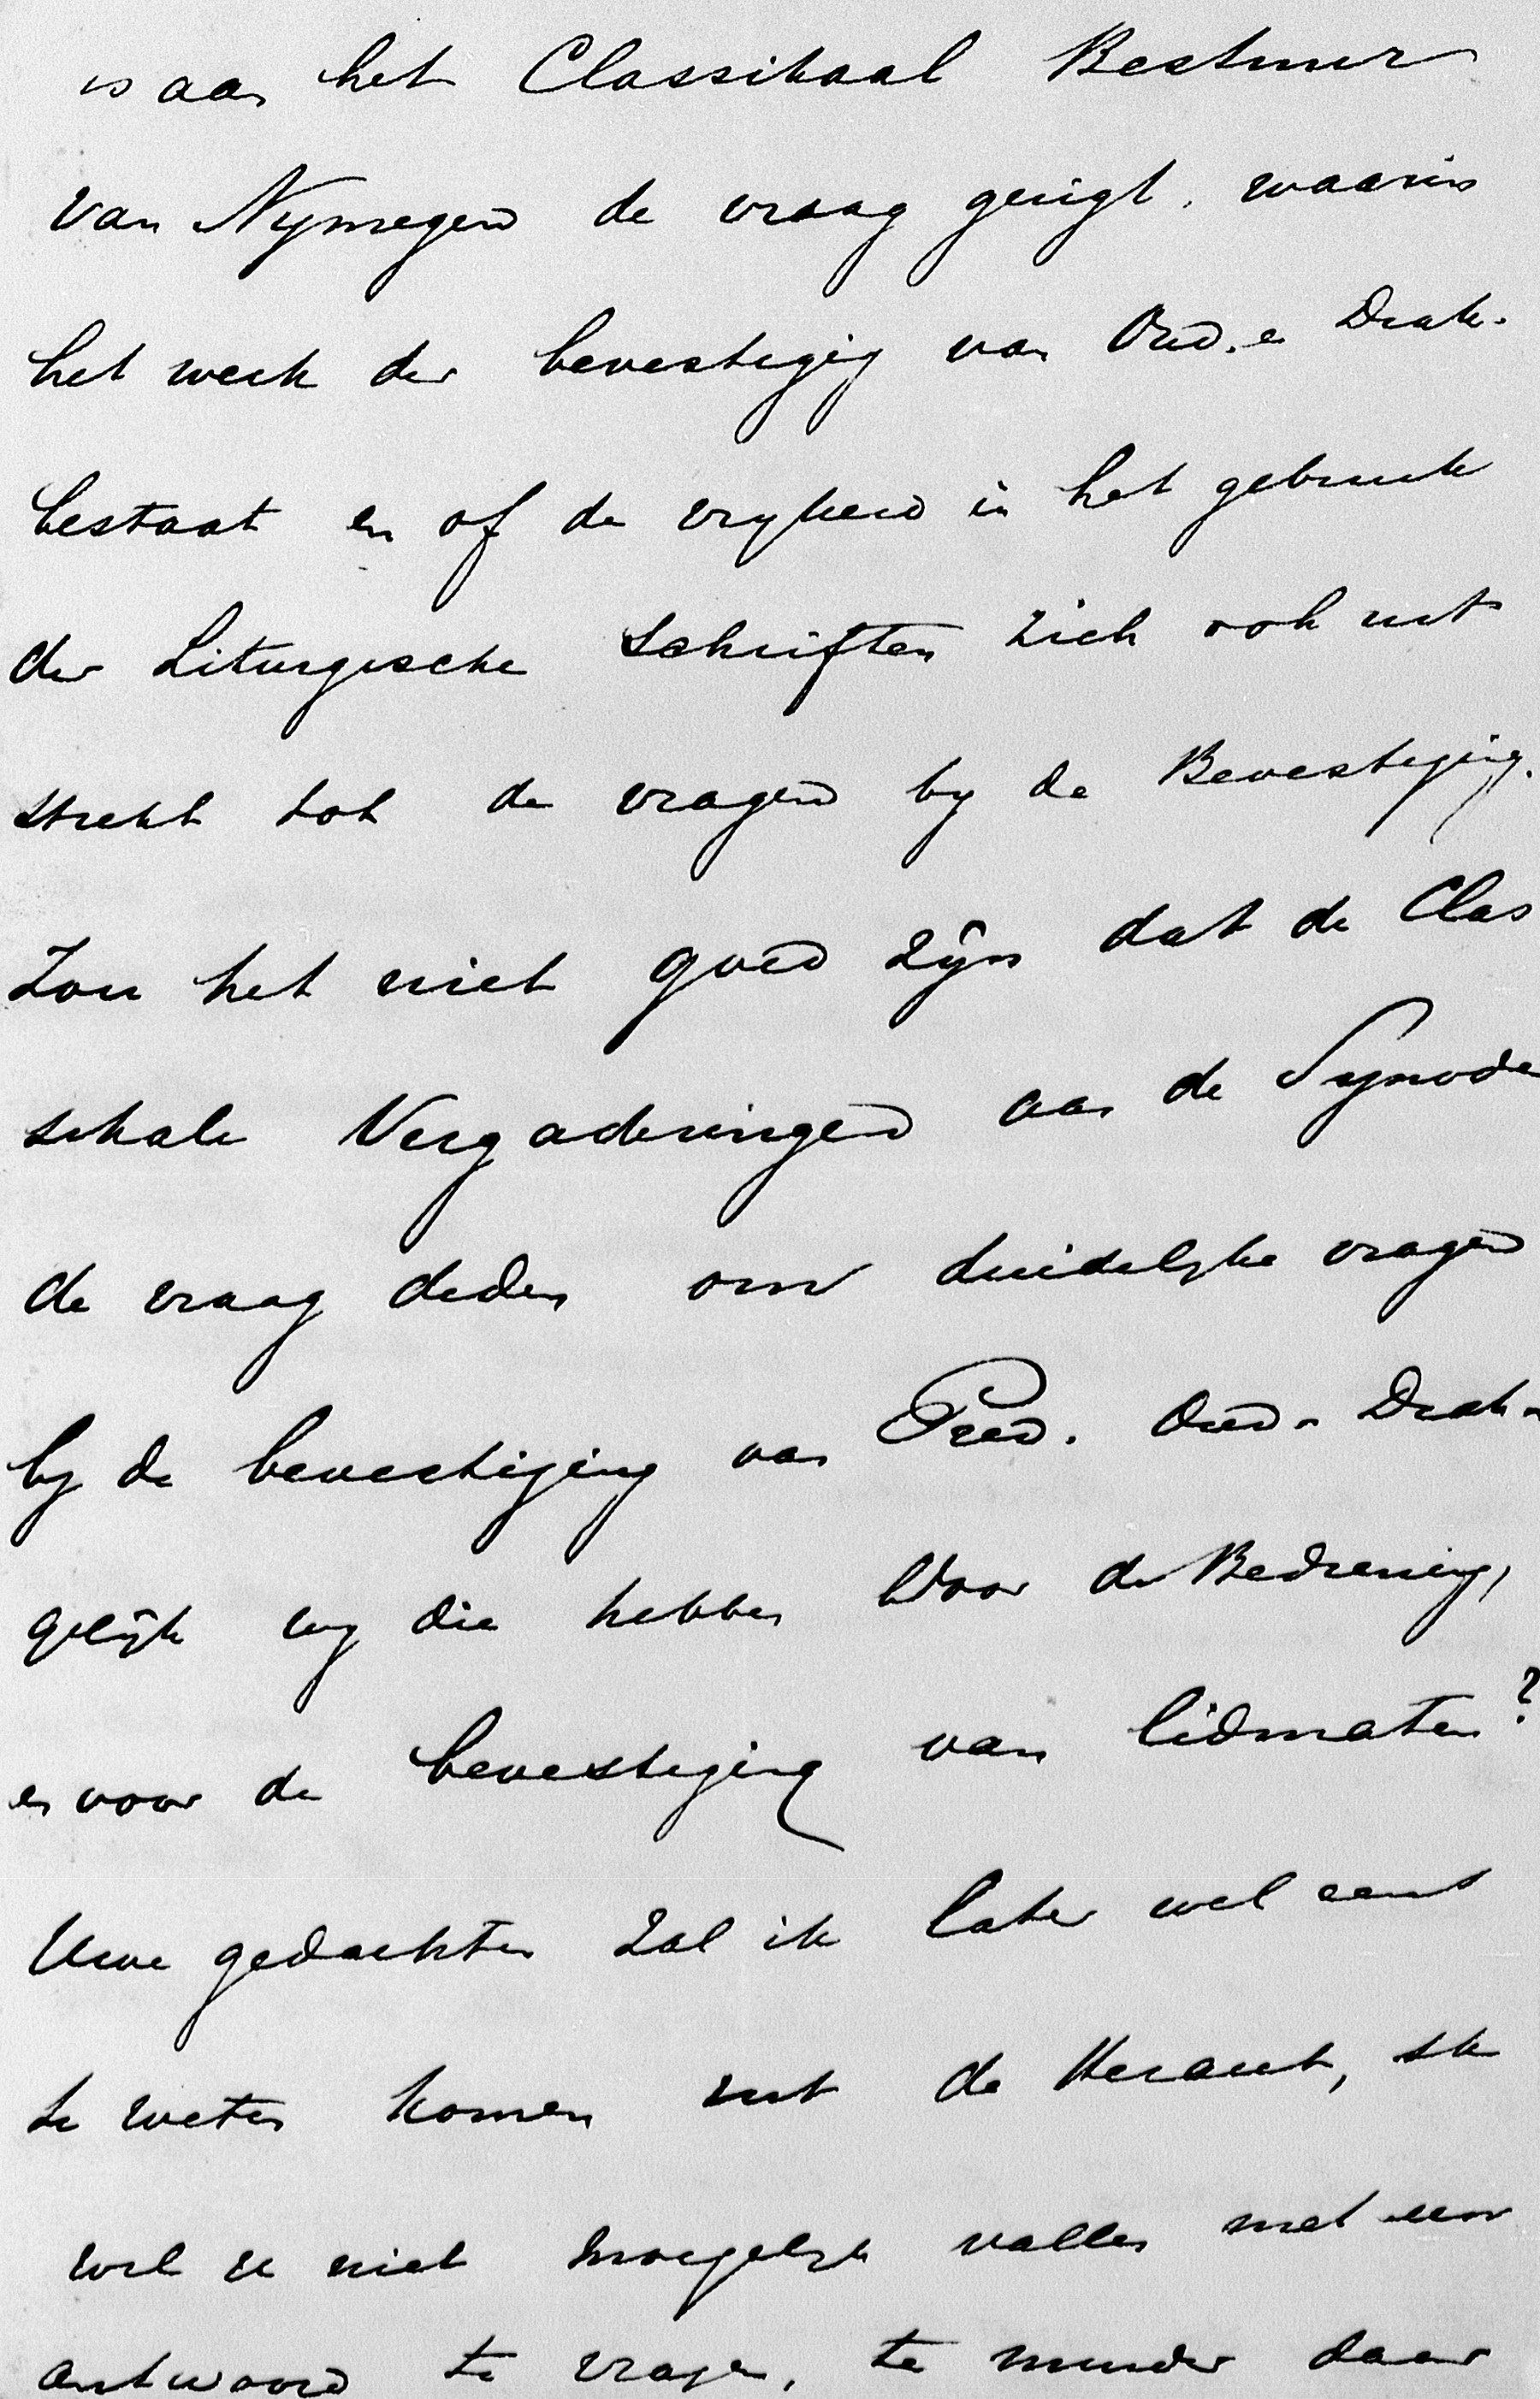 is aan het Classikaal Bestuur
van Nymegen de vraag gerigt, waarin
het werk der bevestiging van Oud. e Diak.
bestaat en of de vryheid in het gebruik
der Liturgische schriften zich ook uit
strekt tot de vragen by de Bevestiging.
Zou het niet goed zijn dat de Clas
sikale Vergaderingen aan de Synode
de vraag deden om duidelyke vragen
by de bevestiging van Pred. Oud. Diak.
gelijk wy die hebben voor de Bediening,
en voor de bevestiging van lidmaten?
Uwe gedachten zal ik later wel eens
te weten komen uit de Heraut, ik
wil u niet moeyelyk vallen met een
antwoord te vragen, te minder daar